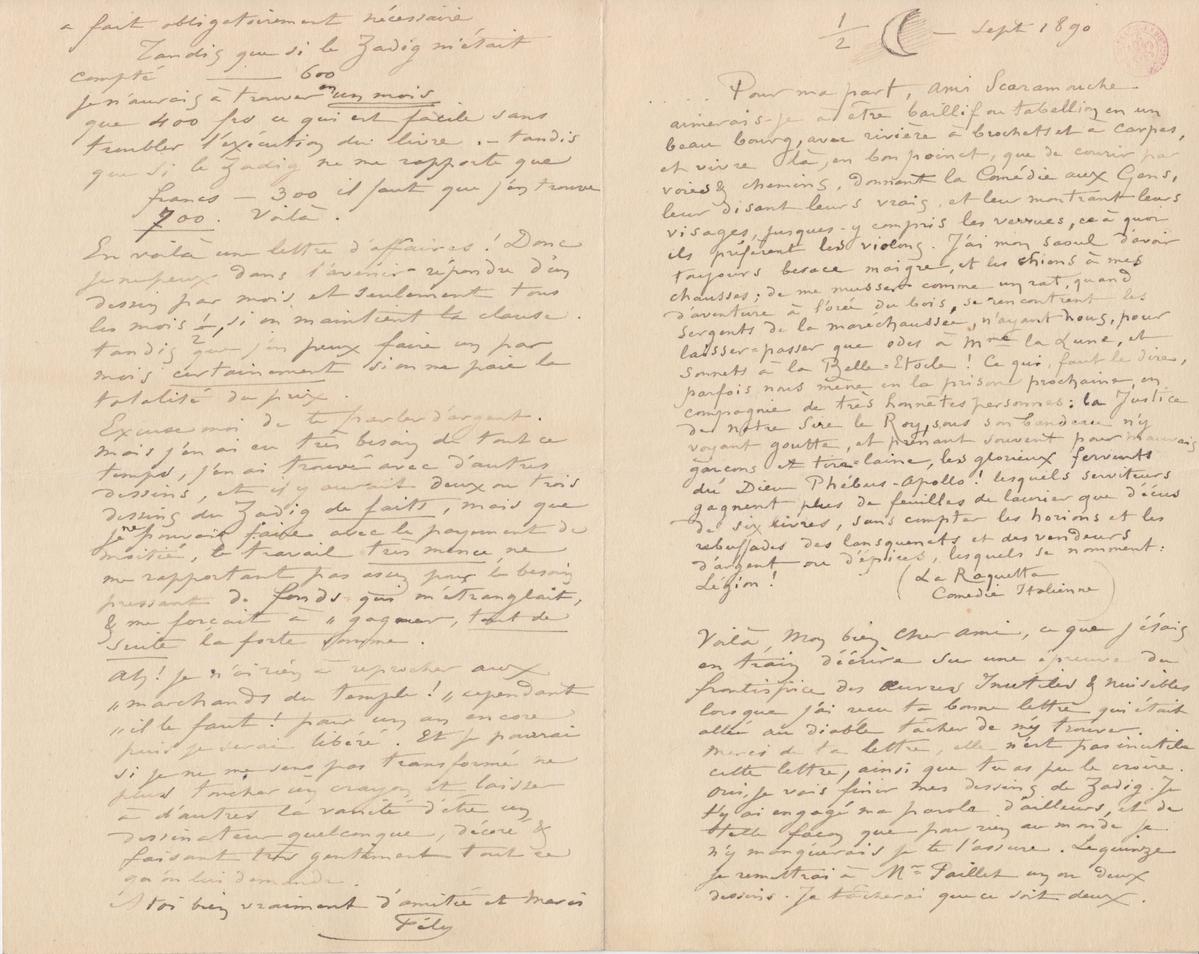 a fait obligatoirement nécessaire
Tandis que si le Zadig m'était
compté ——— 600
je n'aurais à trouver en un mois
que 400 frs ce qui est facile sans
troubler l'exécution du livre. — tandis
que si le Zadig ne me rapporte que
francs — 300 il faut que j'en trouve
700. Voilà.
En voilà une lettre d'affaires! Donc
je ne peux dans l'avenir répondre d'un
dessin par mois, et seulement tous
les mois 1/2, si on maintient la clause.
tandis que j'en peux faire un par
mois certainement si on me paie la
totalité du prix.
Excuse moi de te parler d'argent.
mais j'en ai eu très besoin de tout ce
temps, j'en ai trouvé avec d'autres
dessins, et il y aurait deux ou trois
dessins du Zadig de faits, mais que
je ne pouvais faire avec le payement de
moitié, le travail très mince ne
me rapportant pas assez pour le besoin
pressant de fonds qui m'étranglait,
& me forçait à "gagner, tout de
suite la forte somme.
Ah! je n'ai rien à reprocher aux
"marchands du temple!" cependant
"il le faut! pour un an encore
puis je serai libéré. Et je pourrai
si je ne me sens pas transformé ne
plus toucher un crayon et laisser
à d'autres la vanité d'être un
dessinateur quelconque, décoré &
faisant très gentiment tout ce
qu'on lui demande.
A toi bien vraiment d'amitié et merci
Fély
1/2 — Sept 1890
Pour ma part, ami Scaramouche
aimerais-je à être baillif ou tabellion en un
beau bourg, avec rivière à brochets et à carpes,
et vivre là, en bon poinct, que de courir par
voies & chemins, donnant la Comédie aux Gens,
leur disant leurs vrais, et leur montrant leurs
visages, jusques-y compris les verrues, ce à quoi
ils préfèrent les violons. J'ai mon saoul d'avoir
toujours besace maigre, et les chiens à mes
chausses; de me musser comme un rat, quand
d'aventure à l'orée du bois, se rencontrent les
sergents de la maréchaussée, n'ayant nous, pour
laisser-passer que odes à Mme la Lune, et
Sonnets à la Belle-Etoile! Ce qui, faut le dire,
parfois nous mène en la prison prochaine, en
compagnie de très honnêtes personnes: la Justice
de notre Sire le Roy, sous son bandeau n'y
voyant goutte, et prenant souvent pour mauvais
garçons et tire-laine, les glorieux fervents
du Dieu Phébus-Apollo! lesquels serviteurs
gagnent plus de feuilles de laurier que d'écus
de six livres, sans compter les horions et les
rebuffades des lansquenets et des vendeurs
d'argent ou d'épices, lesquels se nomment:
Légion!
(La Raquetta
Comédie Italienne)
Voilà, Mon bien cher ami, ce que j'étais
en train d'écrire sur une épreuve du
frontispice des Œuvres Inutiles & nuisibles
lorsque j'ai reçu ta bonne lettre qui était
allée au diable tâcher de m'y trouver.
Merci de ta lettre, elle n'est pas inutile
cette lettre, ainsi que tu as pu le croire.
Oui, je vais finir mes dessins de Zadig. Je
t'y ai engagé ma parole d'ailleurs, et de
telle façon que pour rien au monde je
n'y manquerais je te l'assure. Le quinze
je remettrai à Mr Paillet un ou deux
dessins. Je tâcherai que ce soit deux.